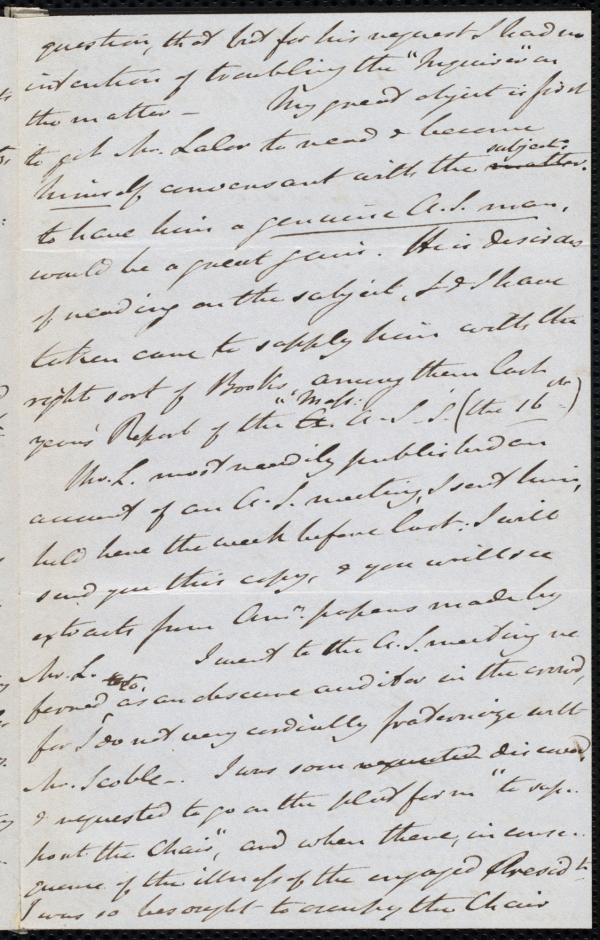 question, that but for his request I had no
intention of troubling the "Inquirer" on
the matter — My great object is first
to get Mr. Lalor to read & become
himself conversant with the matter. subject:
to have him a genuine A.S. man,
would be a great gain. He is desirous
of reading on the subject, & I have
taken care to supply him with the
right sort of Books, among them last
year's Report of the "Mass. A. S. S." (the 16th)
Mr. L. most readily published an
account of an A. S. meeting, I sent him,
held here the week before last. I will
send you this copy, & you will see
extracts from Amn. papers made by
Mr. L. I went to the A. S. meeting re
ferred to, as an obscure auditor in the crowd,
for I do not very cordially fraternize with
Mr. Scoble —. I was soon requested discovered
& requested to go on the platform "to sup-
port the Chair", and when there, in conse-
quence of the illness of the engaged Presidt.
I was so besought to occupy the Chair